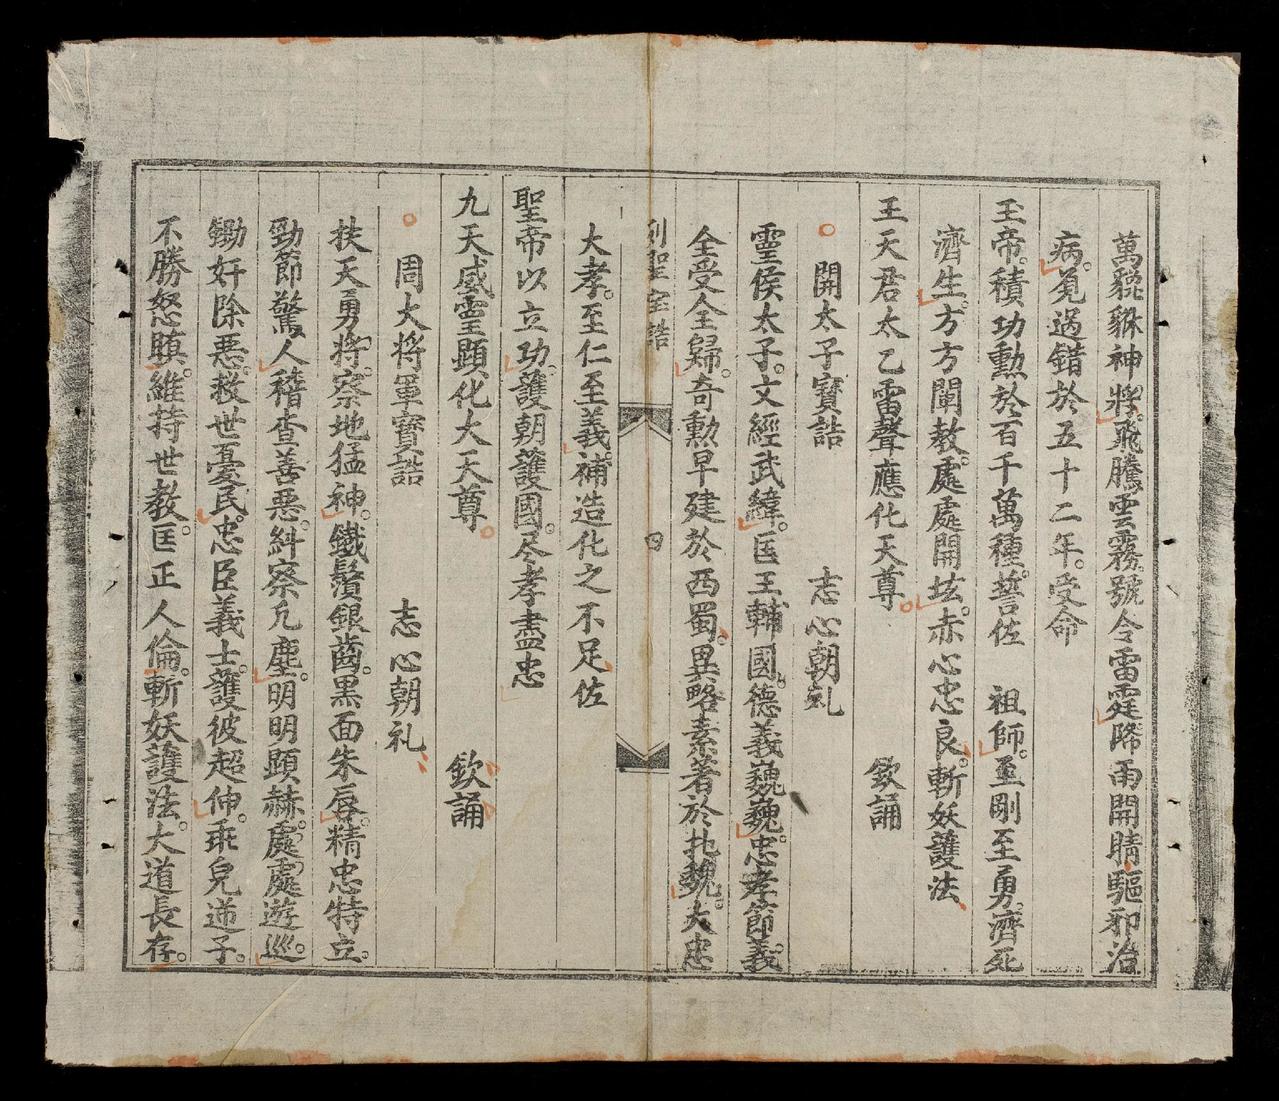 萬貔貅神將。飛騰雲霧。號令雷霆。降雨開晴。驅邪治
病。免過錯於五十二年。受命
玉帝。積功勳於百千萬種。誓佐 祖師。至剛至勇。濟死
濟生。方方闡教。處處開坛。赤心忠良。斬妖護法
王天君太乙雷聲應化天尊。 欽誦
開太子寳誥 志心朝礼
靈侯太子。文經武緯。匡王輔國。德義巍巍。忠孝節義
全受全歸。奇勳早建於西蜀。異略素著於北魏。大忠
列聖宝誥 四
大孝。至仁至義。補造化之不足。佐
聖帝以立功。護朝護國。尽孝盡忠
九天威靈顕化大天尊。 欽誦
周大将軍寳誥 志心朝礼
扶天勇将。察地猛神。鐵鬚銀齒。黒面朱唇。精忠特立。
勁節驚人。稽查善惡。糾察凢塵。明明顕赫。處處遊巡。
鋤奸除惡。救世憂民。忠臣義士。護彼超伸。乖兒逆子。
不勝怒瞋。維持世教。匡正人倫。斬妖護法。大道長存。